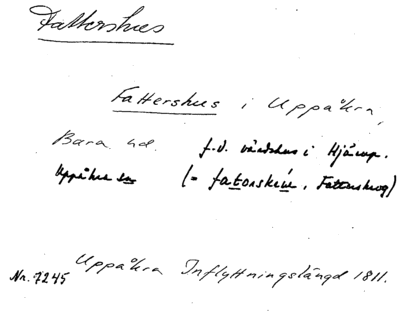 Fattershus
Fattershus i Uppåkra,
Bara hd. f.d. värdshus i Hjärup.
Uppåkra sn (= fatorskru, Fatterskrog)
Uppåkra Inflyttningslängd 1811.
Nr. 7245